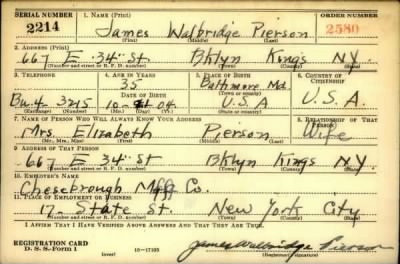 SERIAL NUMBER 1. NAME (Print) ORDER NUMBER
2214 James Walbridge Pierson 2580
(First) (Middle) (Last)
2. ADDRESS (Print)
667 E. 34 St Bklyn Kings N.Y.
(Number and street or R. F. D. number) (Town) (County) (State)
3. TELEPHONE 4. AGE IN YEARS 5. PLACE OF BIRTH 6. COUNTRY OF CITIZENSHIP
35 Baltimore Md.
DATE OF BIRTH (Town or county)
Bu.4 3215 10 04 U.S.A U.S.A.
(Exchange) (Number) (Mo.) (Day) (Yr.) (State or country)
7. NAME OF PERSON WHO WILL ALWAYS KNOW YOUR ADDRESS 8. RELATIONSHIP OF THAT PERSON
Mrs. Elizabeth Pierson Wife
(Mr., Mrs., Miss) (First) (Middle) (Last)
9. ADDRESS OF THAT PERSON
667 E 34 St Bklyn Kings N.Y.
(Number and street or R. F. D. number) (Town) (County) (State)
10. EMPLOYER'S NAME
Chesebrough Mfg Co.
11. PLACE OF EMPLOYMENT OR BUSINESS
17 State St. New York City
(Number and street or R. F. D. number) (Town) (County) (State)
I AFFIRM THAT I HAVE VERIFIED ABOVE ANSWERS AND THAT THEY ARE TRUE.
REGISTRATION CARD
D. S. S. Form 1 16-17105 James Walbridge Pierson